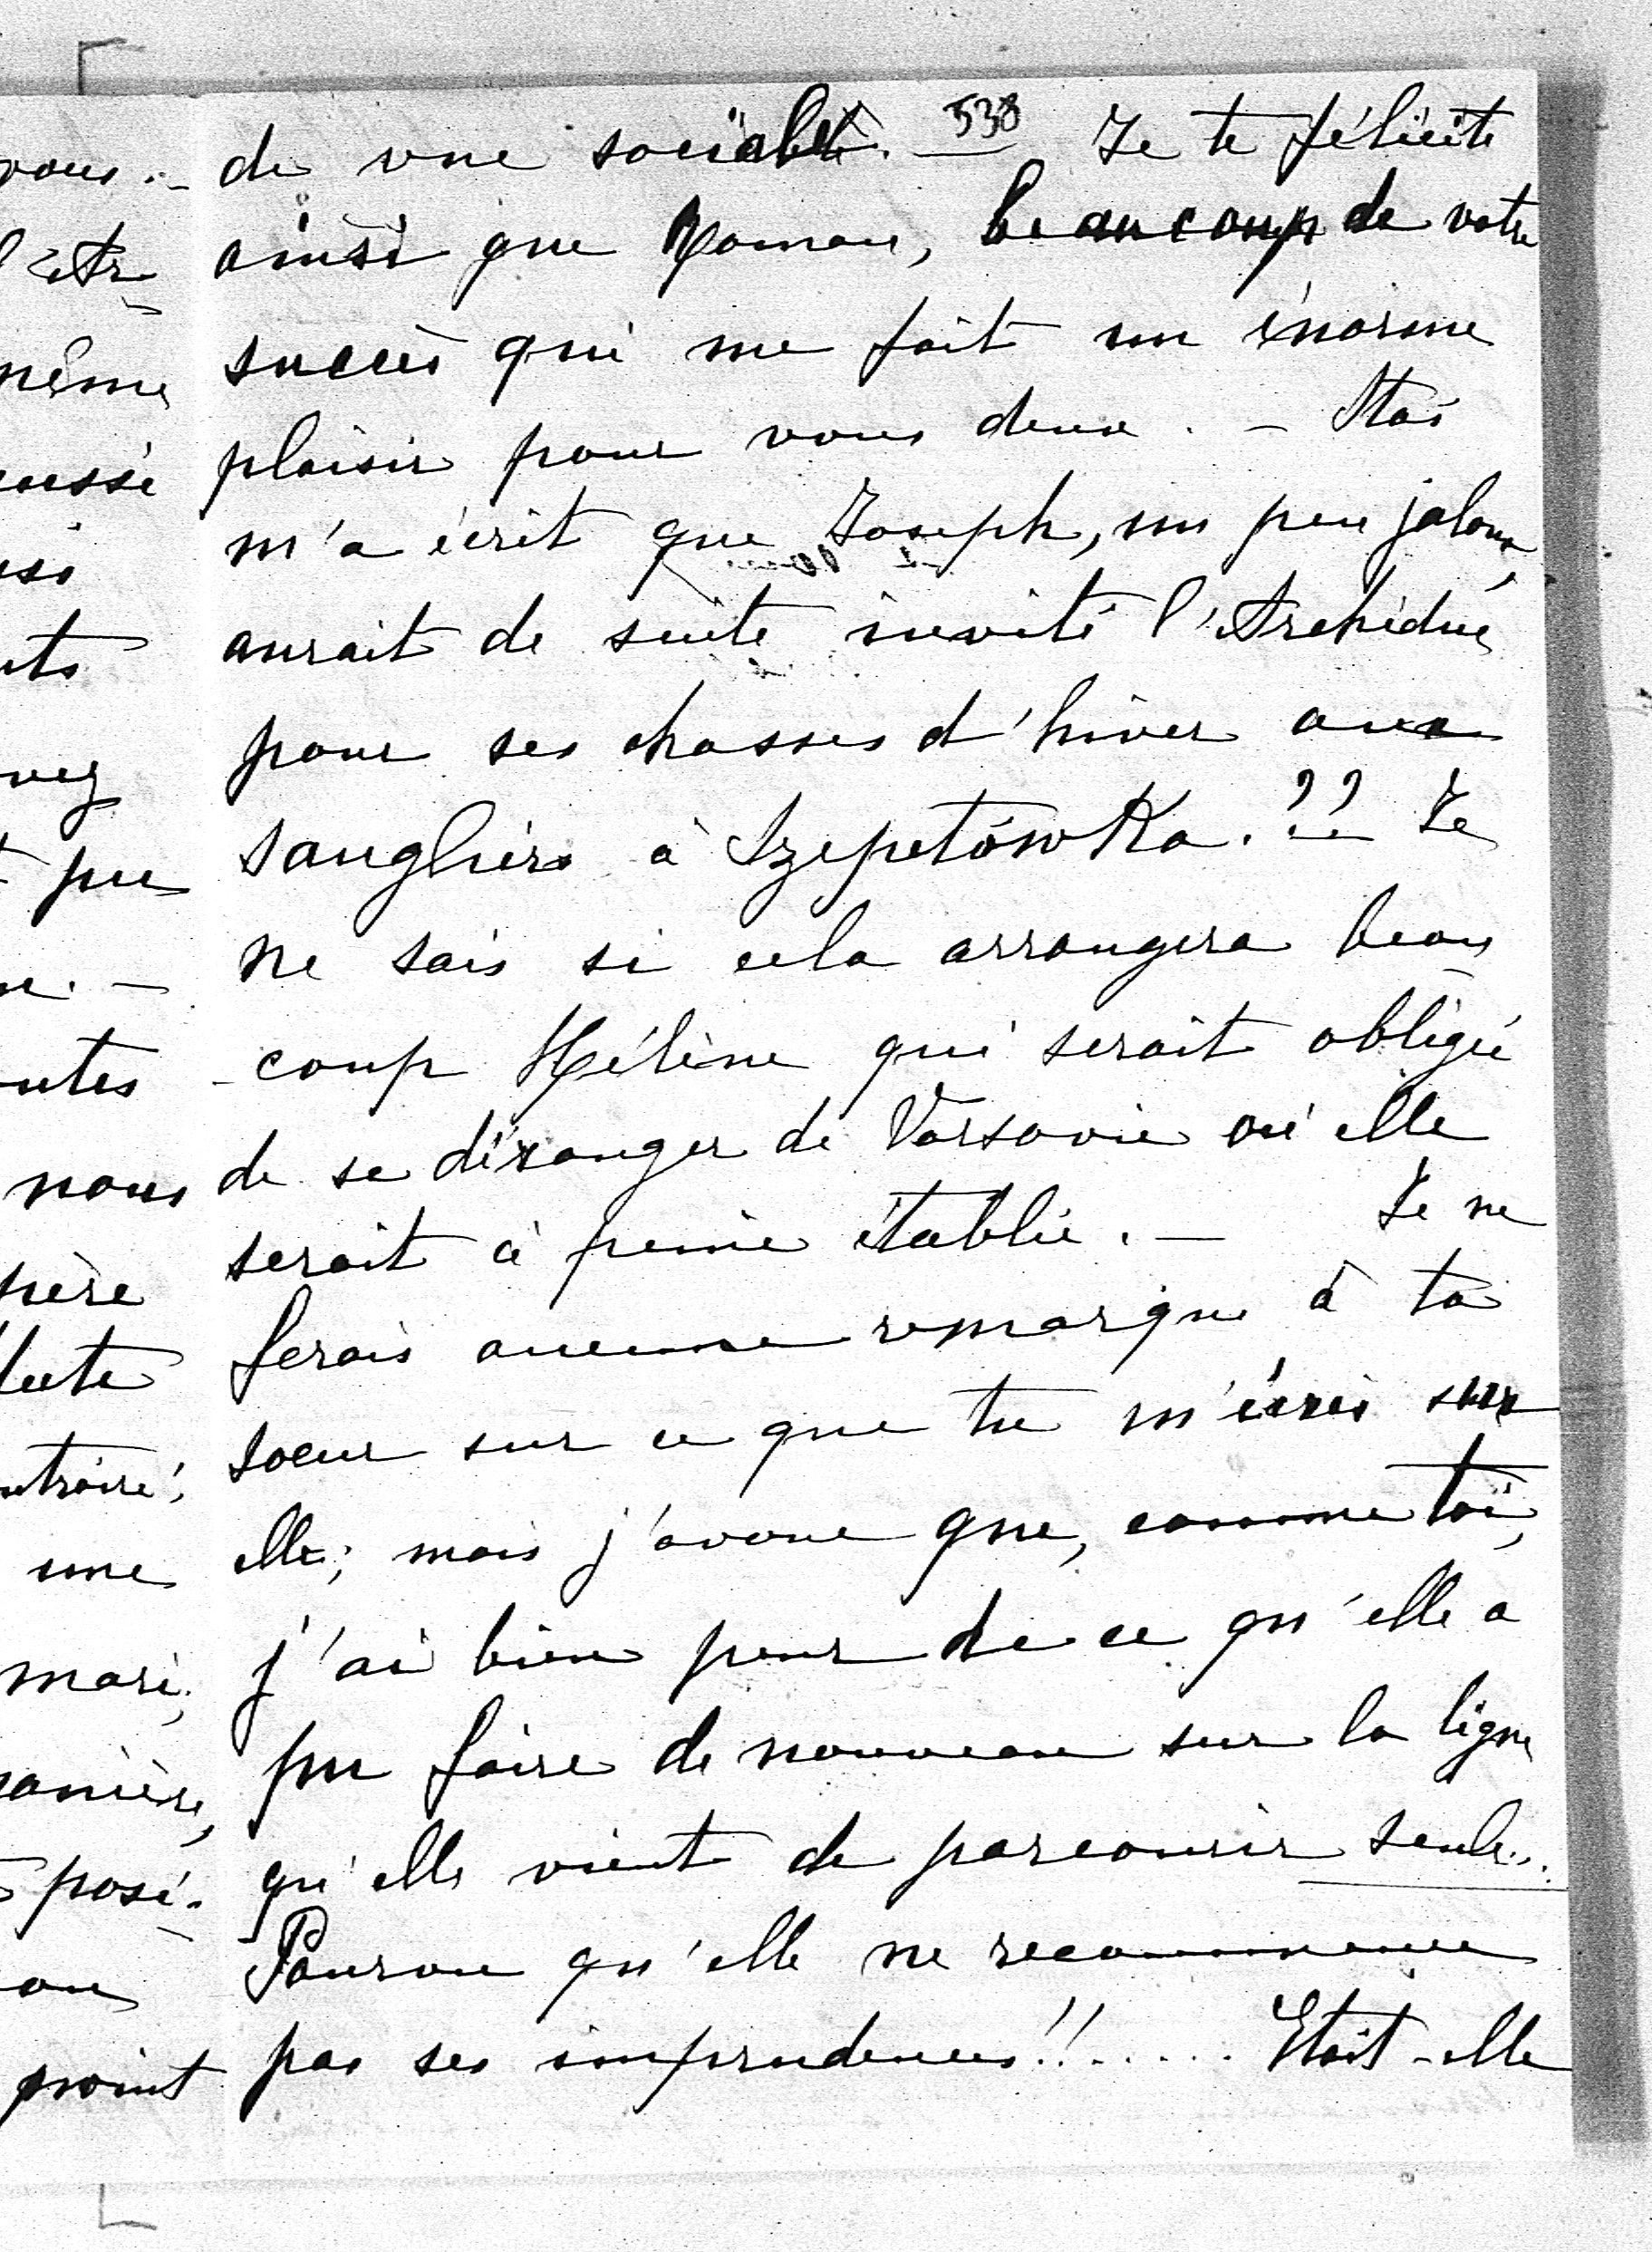 de vue sociable. — 538 Je te félicite
ainsi que Roman, beaucoup de votre
succès qui me fait un énorme
plaisir pour vous deux. — Stas
m'a écrit que Joseph, un peu jaloux,
aurait de suite invité l'Archiduc
pour ses chasses d'hiver aux
sangliers à Szepetówka. ?? Je
ne sais si cela arrangera beau
-coup Hélène qui serait obligée
de se déranger de Varsovie où elle
serait à peine établie. — Je ne
ferais aucune remarque à ta
soeur sur ce que tu m'écris sur
elle; mais j'avoue que, comme toi,
j'ai bien peur de ce qu'elle a
pu faire de nouveau sur la ligne
qu'elle vient de parcourir seule...
Pourvu qu'elle ne recommence
pas ses imprudences!!..... Etait-elle
vous. —
l'Ar-
même
aussi
nous
père
une
mari,
posé-
point